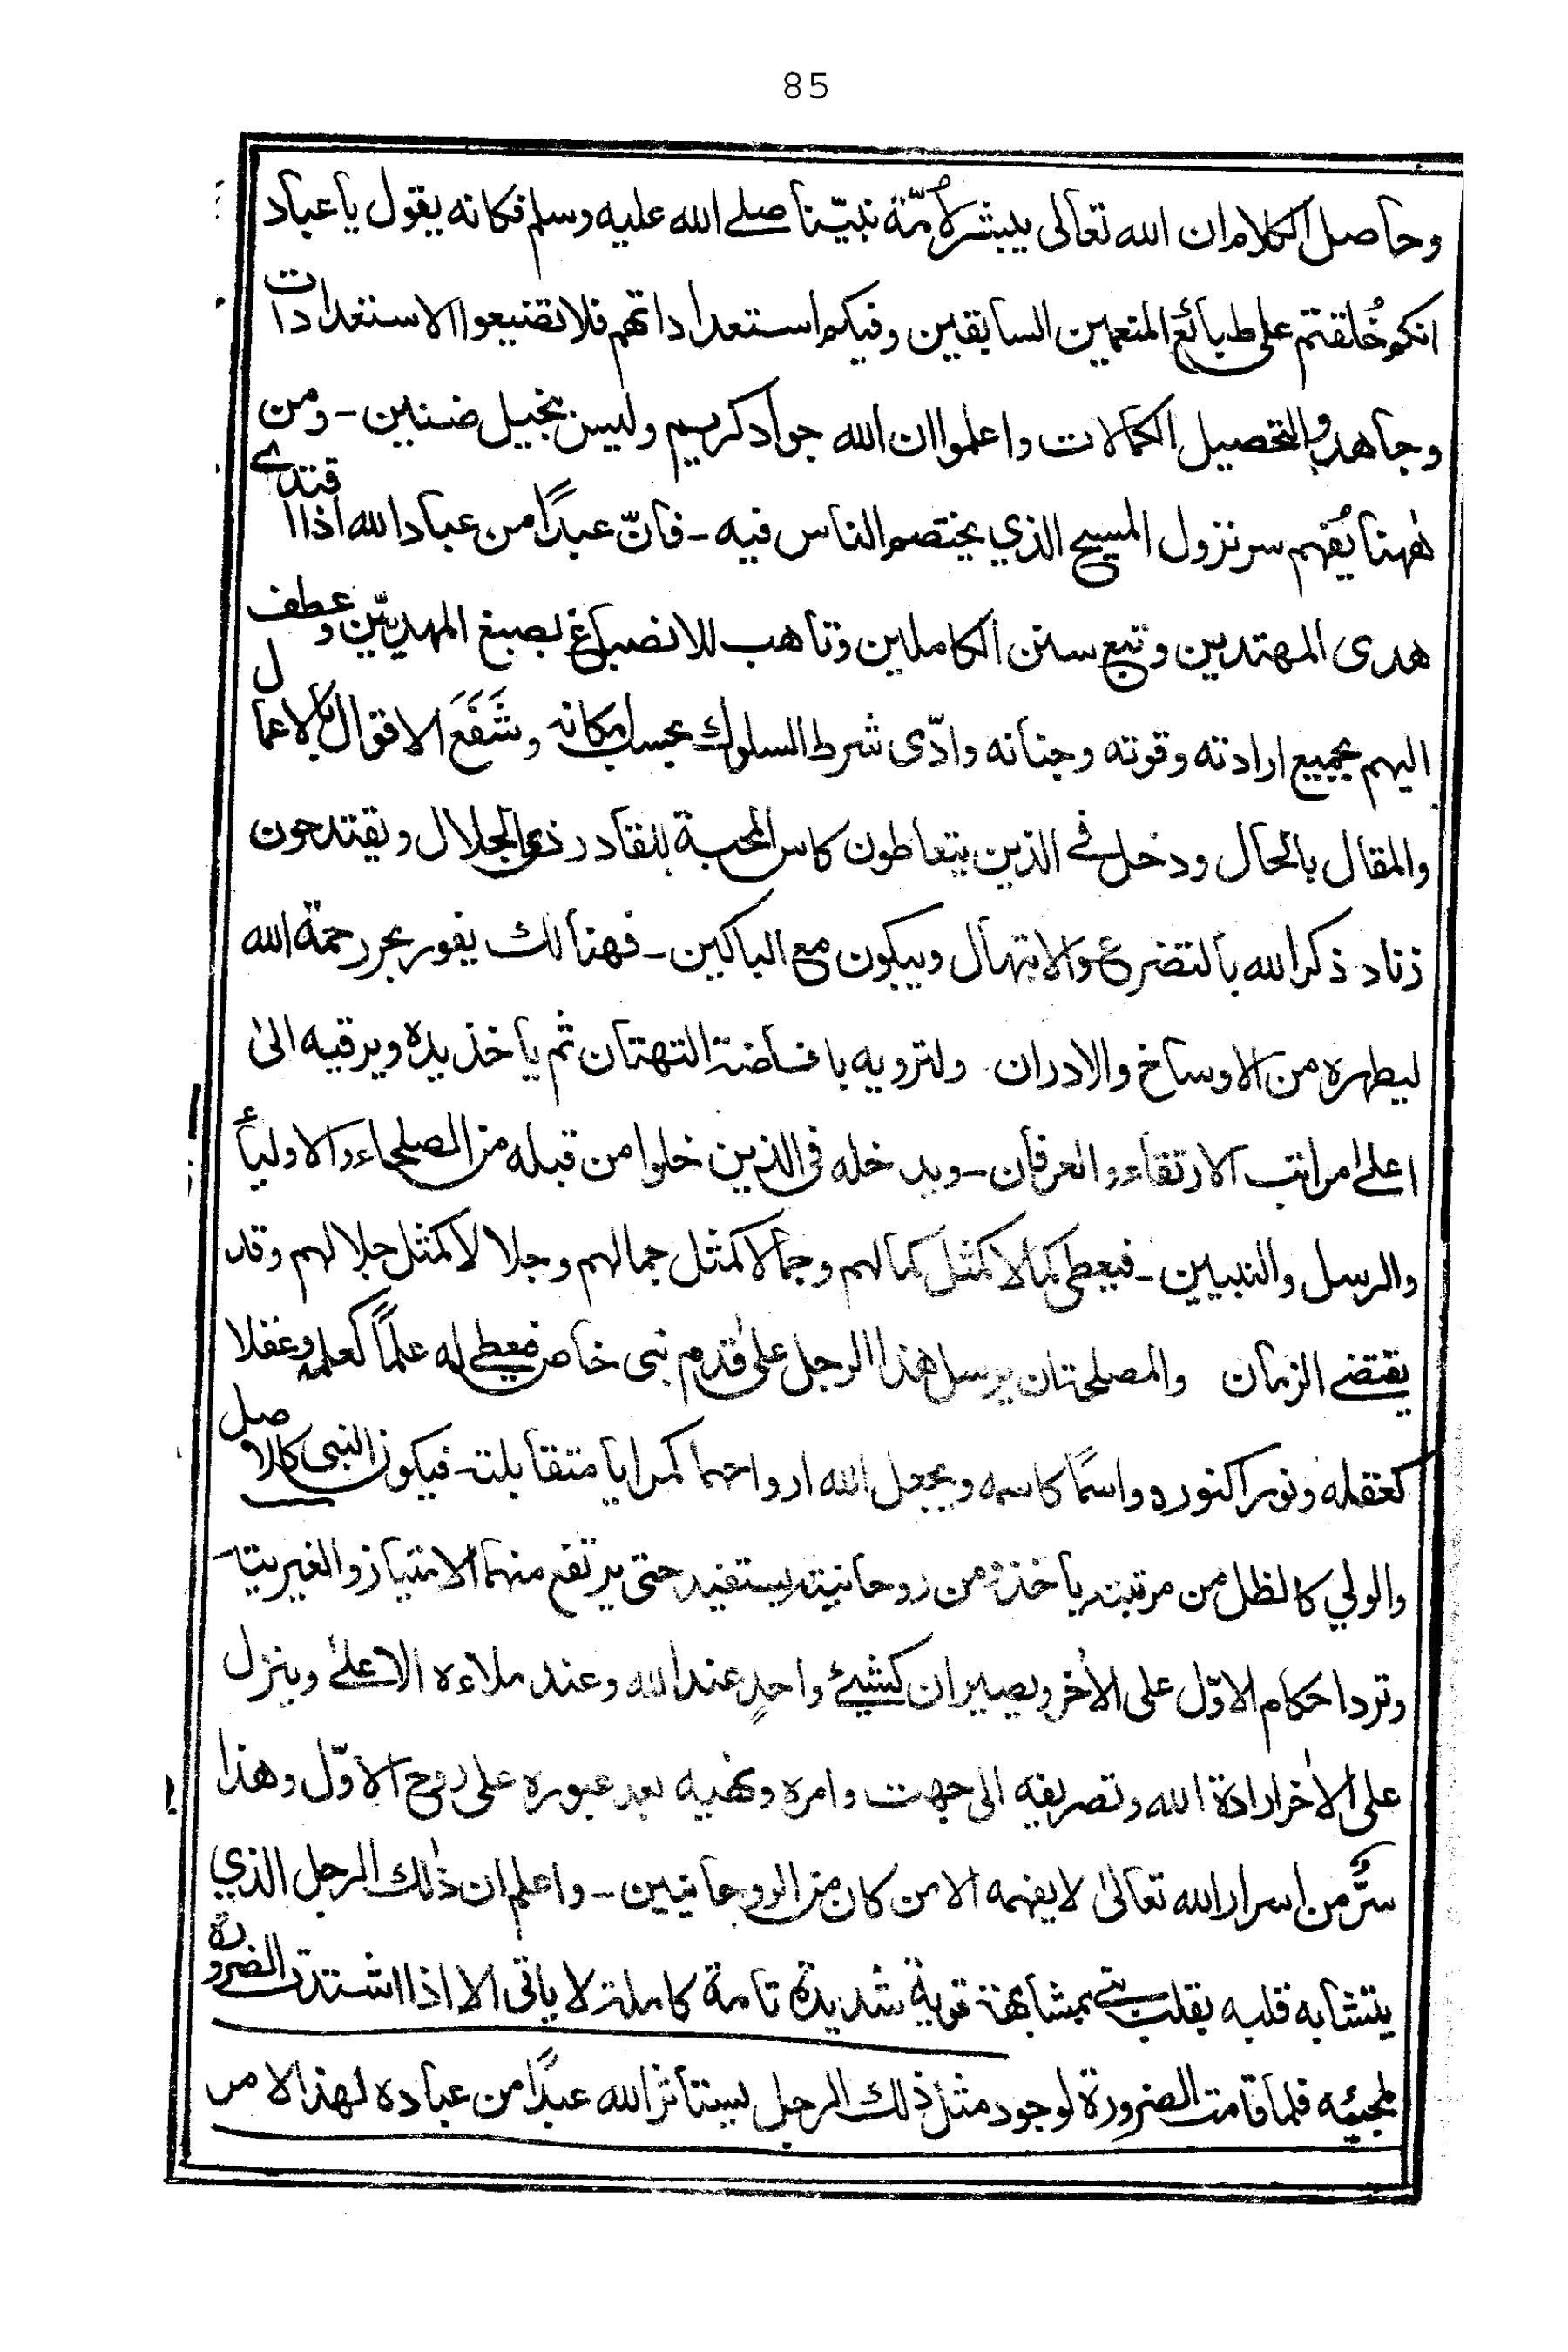 85
وحاصل الكلام ان الله تعالى يبشر لأمّة نبيّنا صلے الله عليه وسلم فكانه يقول يا عباد
انكم خُلقتم على طبائع المنعمين السابقين وفيكم استعداداتهم فلا تضيعوا الاستعدادات
وجاهدوا لتحصيل الكمالات واعلموا ان الله جواد كريم وليس بخيل ضنين - ومن
ههٰنا يُفهم سر نزول المسيح الذي يختصم الناس فيه - فانّ عبدًا من عباد الله اذا اقتدے
هدى المهتدين وتبع سنن الكاملين وتاهب للانصباغ بصبغ المهديّين وعطف
اليهم بجميع ارادته وقوته وجنانه وادّى شرط السلوك بحسب امكانه وشَفَعَ الاقوال بالاعمال
والمقال بالحال ودخل فے الذين يتعاطون كاس المحبة للقادر ذي الجلال ويقتدحون
زناد ذكر الله بالتضرع والابتهال ويبكون مع الباكين - فهنالك يفور بحر رحمة الله
ليطهره من الاوساخ والادران ولترويه بافاضة التهتان ثم ياخذ يده ويرقيه الىٰ
اعلےٰ مراتب الارتقاء والعرفان - ويدخله فى الذين خلوا من قبله من الصلحاء والاولياء
والرسل والنبيين - فيعطى كمالا كمثل كمالهم وجمالا كمثل جمالهم وجلالا كمثل جلالهم وقد
يقتضے الزمان والمصلحة ان يرسل هذا الرجل علىٰ قدم نبى خاص فيعطےٰ له علمًا كعلمه وعقلا
كعقله ونورا كنوره واسمًا كاسمه ويجعل الله ارواحهما كمرايا متقابلة فيكون النبى كالاصل
والولي كالظل من مرتبته ياخذ ومن روحانيته يستفيد حتى يرتفع منهما الامتياز والغيرية
وترد احكام الاوّل على الاٰخر ويصيران كشيئے واحدٍ عند الله وعند ملاءه الاعلىٰ وينزل
على الاٰخر ارادة الله وتصريفه الى جهت وامره ونهيه بعد عبوره على روح الاوّل وهذا
سرٌّ من اسرار الله تعالىٰ لا يفهمه الا من كان من الروحانيين - واعلم ان ذٰلك الرجل الذي
يتشابه قلبه بقلب نبي بمشابهة قوية شديدة تامة كاملة لا ياتى الا اذا اشتدت الضرورة
لمجيئه فلما قامت الضرورة لوجود مثل ذلك الرجل يستأثر الله عبدًا من عباده لهذا الامر